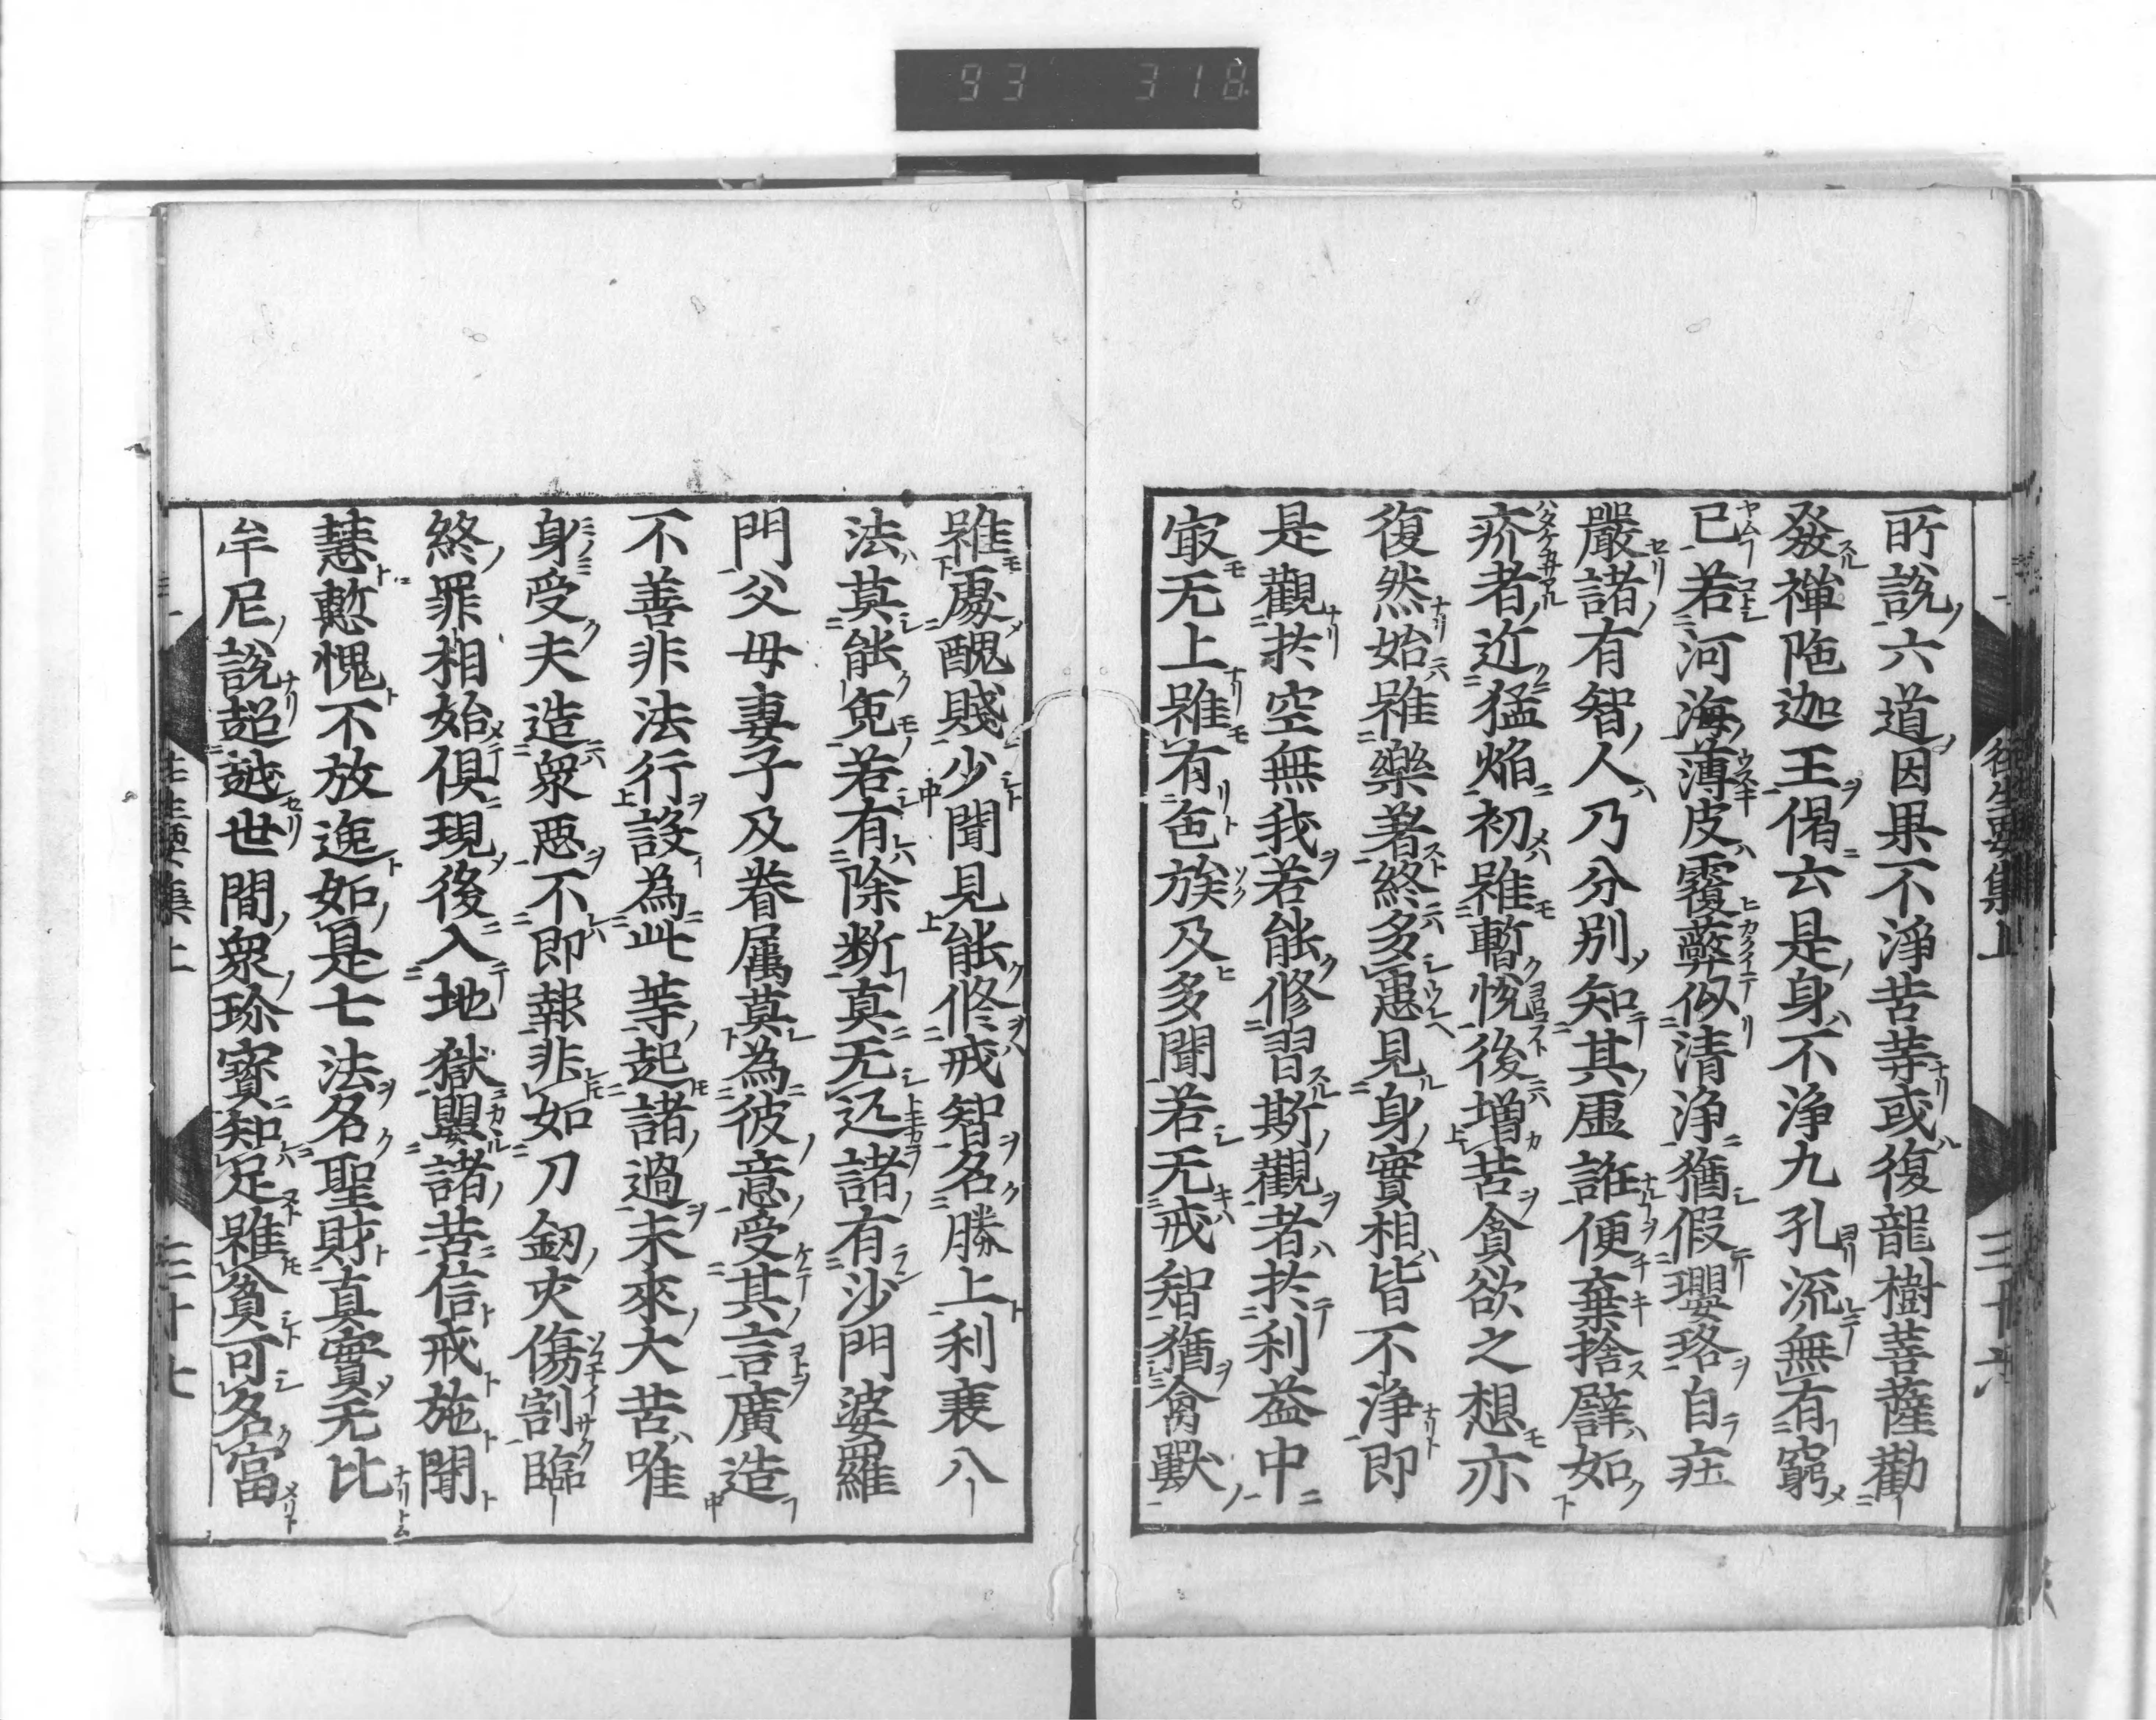 93 318
往生要集上 三十六
所說六道因果不淨苦等或復龍樹菩薩勸
發禪陁迦王偈云是身不淨九孔流無有窮
已若河海薄皮覆蔽似清淨猶假瓔珞自莊
嚴諸有智人乃分別知其虛誑便棄捨譬如
疥者近猛焰初雖暫悅後增苦貪欲之想亦
復然始雖樂著終多患見身實相皆不淨即
是觀於空無我若能修習斯觀者於利益中
㝡无上雖有色族及多聞若无戒智猶禽獸
雖處醜賤少聞見能修戒智名勝上利衰八
法莫能免若有除断真无迊諸有沙門婆羅
門父母妻子及眷属莫為彼意受其言廣造
不善非法行設為此等起諸過未來大苦唯
身受夫造衆惡不即報非如刀釼交傷割臨
終罪相始俱現後入地獄嬰諸苦信戒施聞
慧慙愧不放逸如是七法名聖財真實无比
牟尼說超越世間衆珍寶知足雖貧可名富
往生要集上 三十七